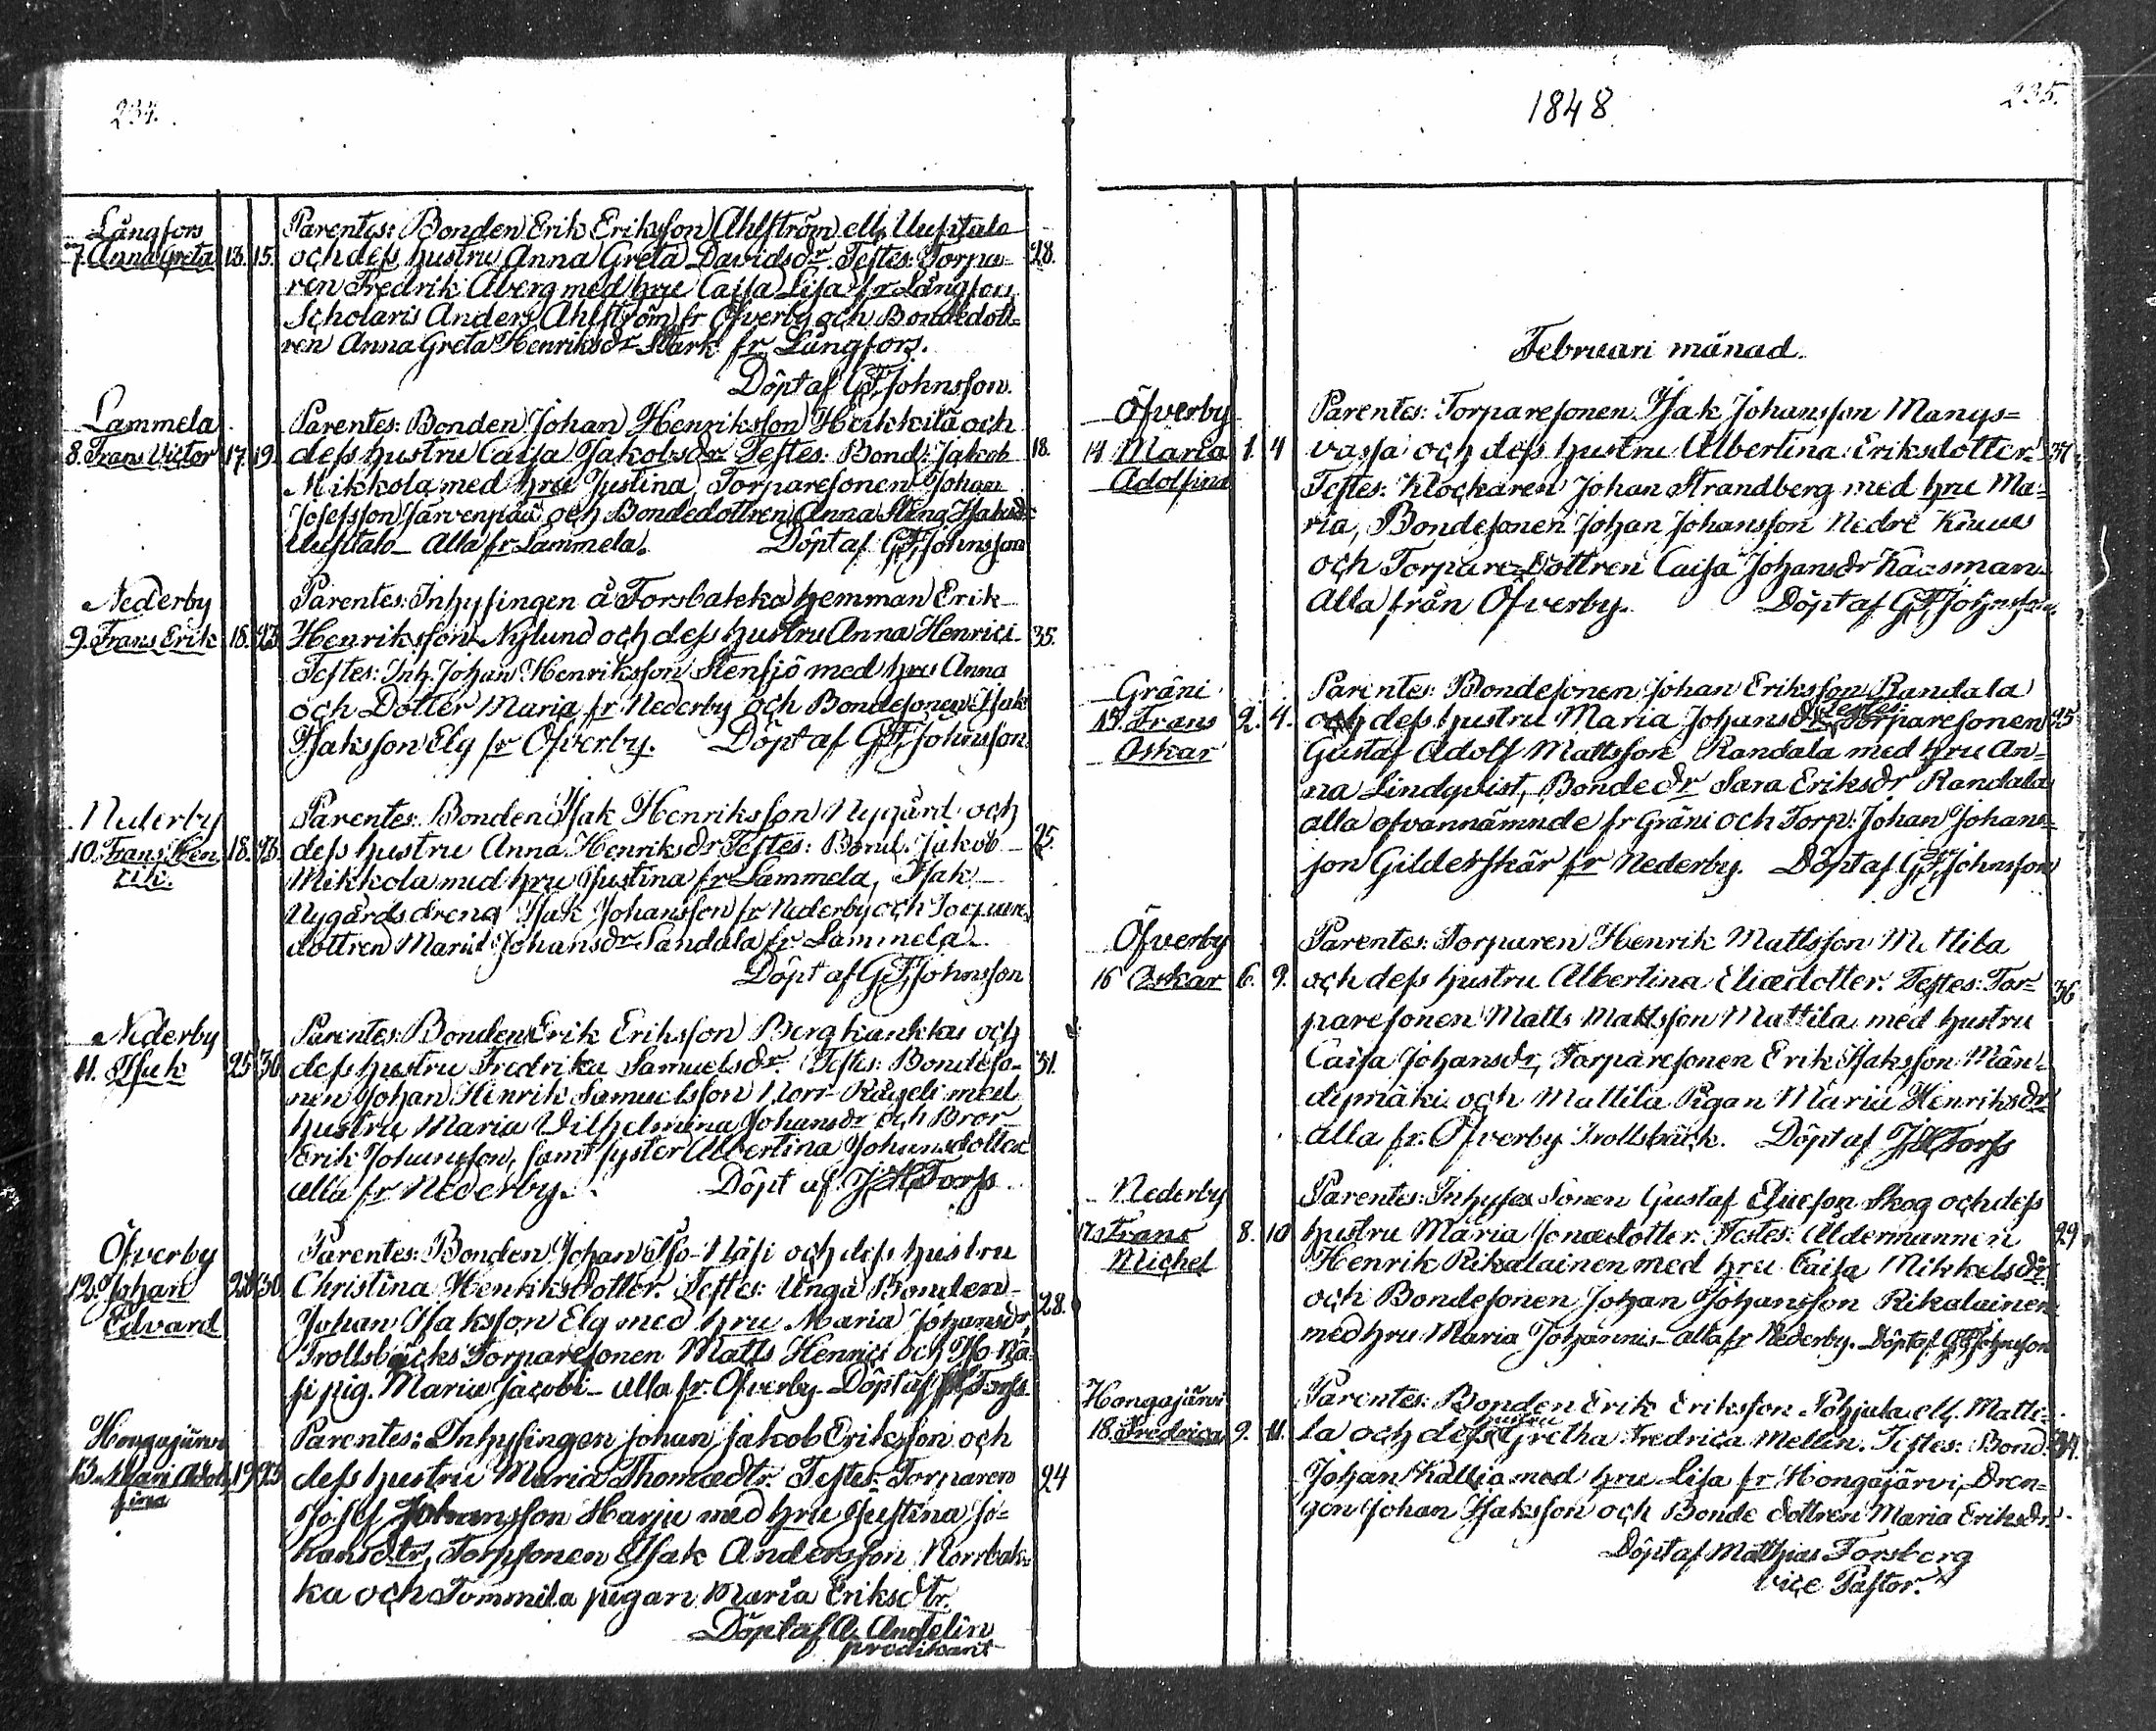 234.
Långfors
7. Anna Greta 13. 15.
Parentes: Bonden Erik Eriksson Ahlström ell. Uusitalo
och dess hustru Anna Greta Davidsdr. Testes: Torpa= 28.
ren Fredrik Åberg med hru Caisa Lisa fr Långfors,
Scholaris Anders Ahlström fr Öfverby och Bondedott=
ren Anna Greta Henriksdr Stark fr Långfors.
Döpt af G.F. Johnsson.
Lammela
8. Frans Victor 17. 19.
Parentes: Bonden Johan Henriksson Heikkilä och
dess hustru Caisa Jakobsdr Testes: Bond: Jakob 18.
Mikkola med hru Justina, Torparesonen Johan
Josefsson Järvenpää och Bondedottren Anna Stina Isaksdr
Uusitalo_ Alla fr Lammela. Döpt af G.F. Johnsson
Nederby
9. Frans Erik 18. 23.
Parentes: Inhysingen å Forsbakka hemman Erik
Henriksson Nylund och dess hustru Anna Henrici 35.
Testes: Inh. Johan Henriksson Stensjö med hru Anna
och Dotter Maria fr Nederby och Bondesonen Isak
Isaksson Elg fr Öfverby. Döpt af G.F. Johnsson
Nederby
10. Frans Hen
rik. 18. 23.
Parentes: Bonden Isak Henriksson Nygård och
dess hustru Anna Henriksdr Testes: Bond. Jakob 25.
Mikkola med hru Justina fr Lammela, Isak
Nygårds dreng Isak Johansson fr Nederby och Torpare
dottren Maria Johansdr Sandala fr Lammela
Döpt af G.F. Johnsson
Nederby
11. Isak 25 30
Parentes: Bonden Erik Eriksson Bergkankkas och
dess hustru Fredrika Samuelsdr. Testes: Bondeso= 31.
nen Johan Henrik Samuelsson Norr-Kägeli med
hustru Maria Vilhelmina Johansdr och Bror
Erik Johansson, samt syster Albertina Johansdotter
alla fr Nederby. Döpt af J H Torss
Öfverby
12. Johan
Edvard 28 30
Parentes: Bonden Johan Iso-Näsi och dess hustru
Christina Henriksdotter. Testes: Unga Bonden
Johan Isaksson Elg med hru Maria Johansdr, 28.
Trollsbäcks Torparesonen Matts Henrici och Iso-Nä
si pig. Maria Jacobi_ alla fr. Öfverby. Döpt af J H Torss
Hongajärvi
13. Maria Adol
fina 19 23
Parentes: Inhysingen Johan Jakob Eriksson och
dess hustru Maria Thomædtr. Testes: Torparen 24
Josef Johansson Harju med hru Justina Jo=
hansdtr, Torpsonen Isak Andersson Norrbak=
ka och Tommila pigan Maria Eriksdtr.
Döpt af A. Angelin
predikant
1848
235.
Februari månad.
Öfverby
14 Maria
Adolfina 1. 4
Parentes: Torparesonen Isak Johansson Manys=
vassa och dess hustru Albertina Eriksdotter
Testes: Klockaren Johan Strandberg med hru Ma=
ria, Bondesonen Johan Johansson Nedre Knuus
och Torpare Dottren Caisa Johansdr Kaasman_
Alla från Öfverby. Döpt af G.F. Johnsson
Gräni
15. Frans
Oskar 2. 4.
Parentes: Bondesonen Johan Eriksson Randala
och dess hustru Maria Johansdr Testes: Torparesonen 25
Gustaf Adolf Mattsson Randala med hru An=
na Lindqvist, Bondedr Sara Eriksdr Randala
alla ofvannämnde fr Gräni och Torp: Johan Johans=
son Gilderskär fr Nederby. Döpt af G.F. Johnsson
Öfverby
16 Oskar 6. 9.
Parentes: Torparen Henrik Mattsson Mattila
och dess hustru Albertina Eliædotter. Testes: Tor= 36
paresonen Matts Mattsson Mattila med hustru
Caisa Johansdr, Torparesonen Erik Isaksson Män=
dymäki och Mattila Pigan Maria Henriksdr
alla fr. Öfverby Trollsbäck. Döpt af J H Torss
Nederby
17 Frans
Michel 8. 10
Parentes: Inhyses Sonen Gustaf Eliæson Skog och dess
hustru Maria Jonædotter. Testes: Åldermannen 29
Henrik Rikalainen med hru Caisa Mikkelsdr
och Bondesonen Johan Johansson Rikalainen
med hru Maria Johannis_ alla fr Nederby. Döpt af G.F. Johnsson
Hongajärvi
18. Fredrica 9. 11.
Parentes: Bonden Erik Eriksson Pohjala ell. Matti=
la och dess hustru Gretha Fredrica Mellin. Testes: Bond.
Johan Kallio med hru Lisa fr Hongajärvi, Dren=
gen Johan Isaksson och Bonde dottren Maria Eriksdr.
Döpt af Mathias Forsberg
Vice Pastor.